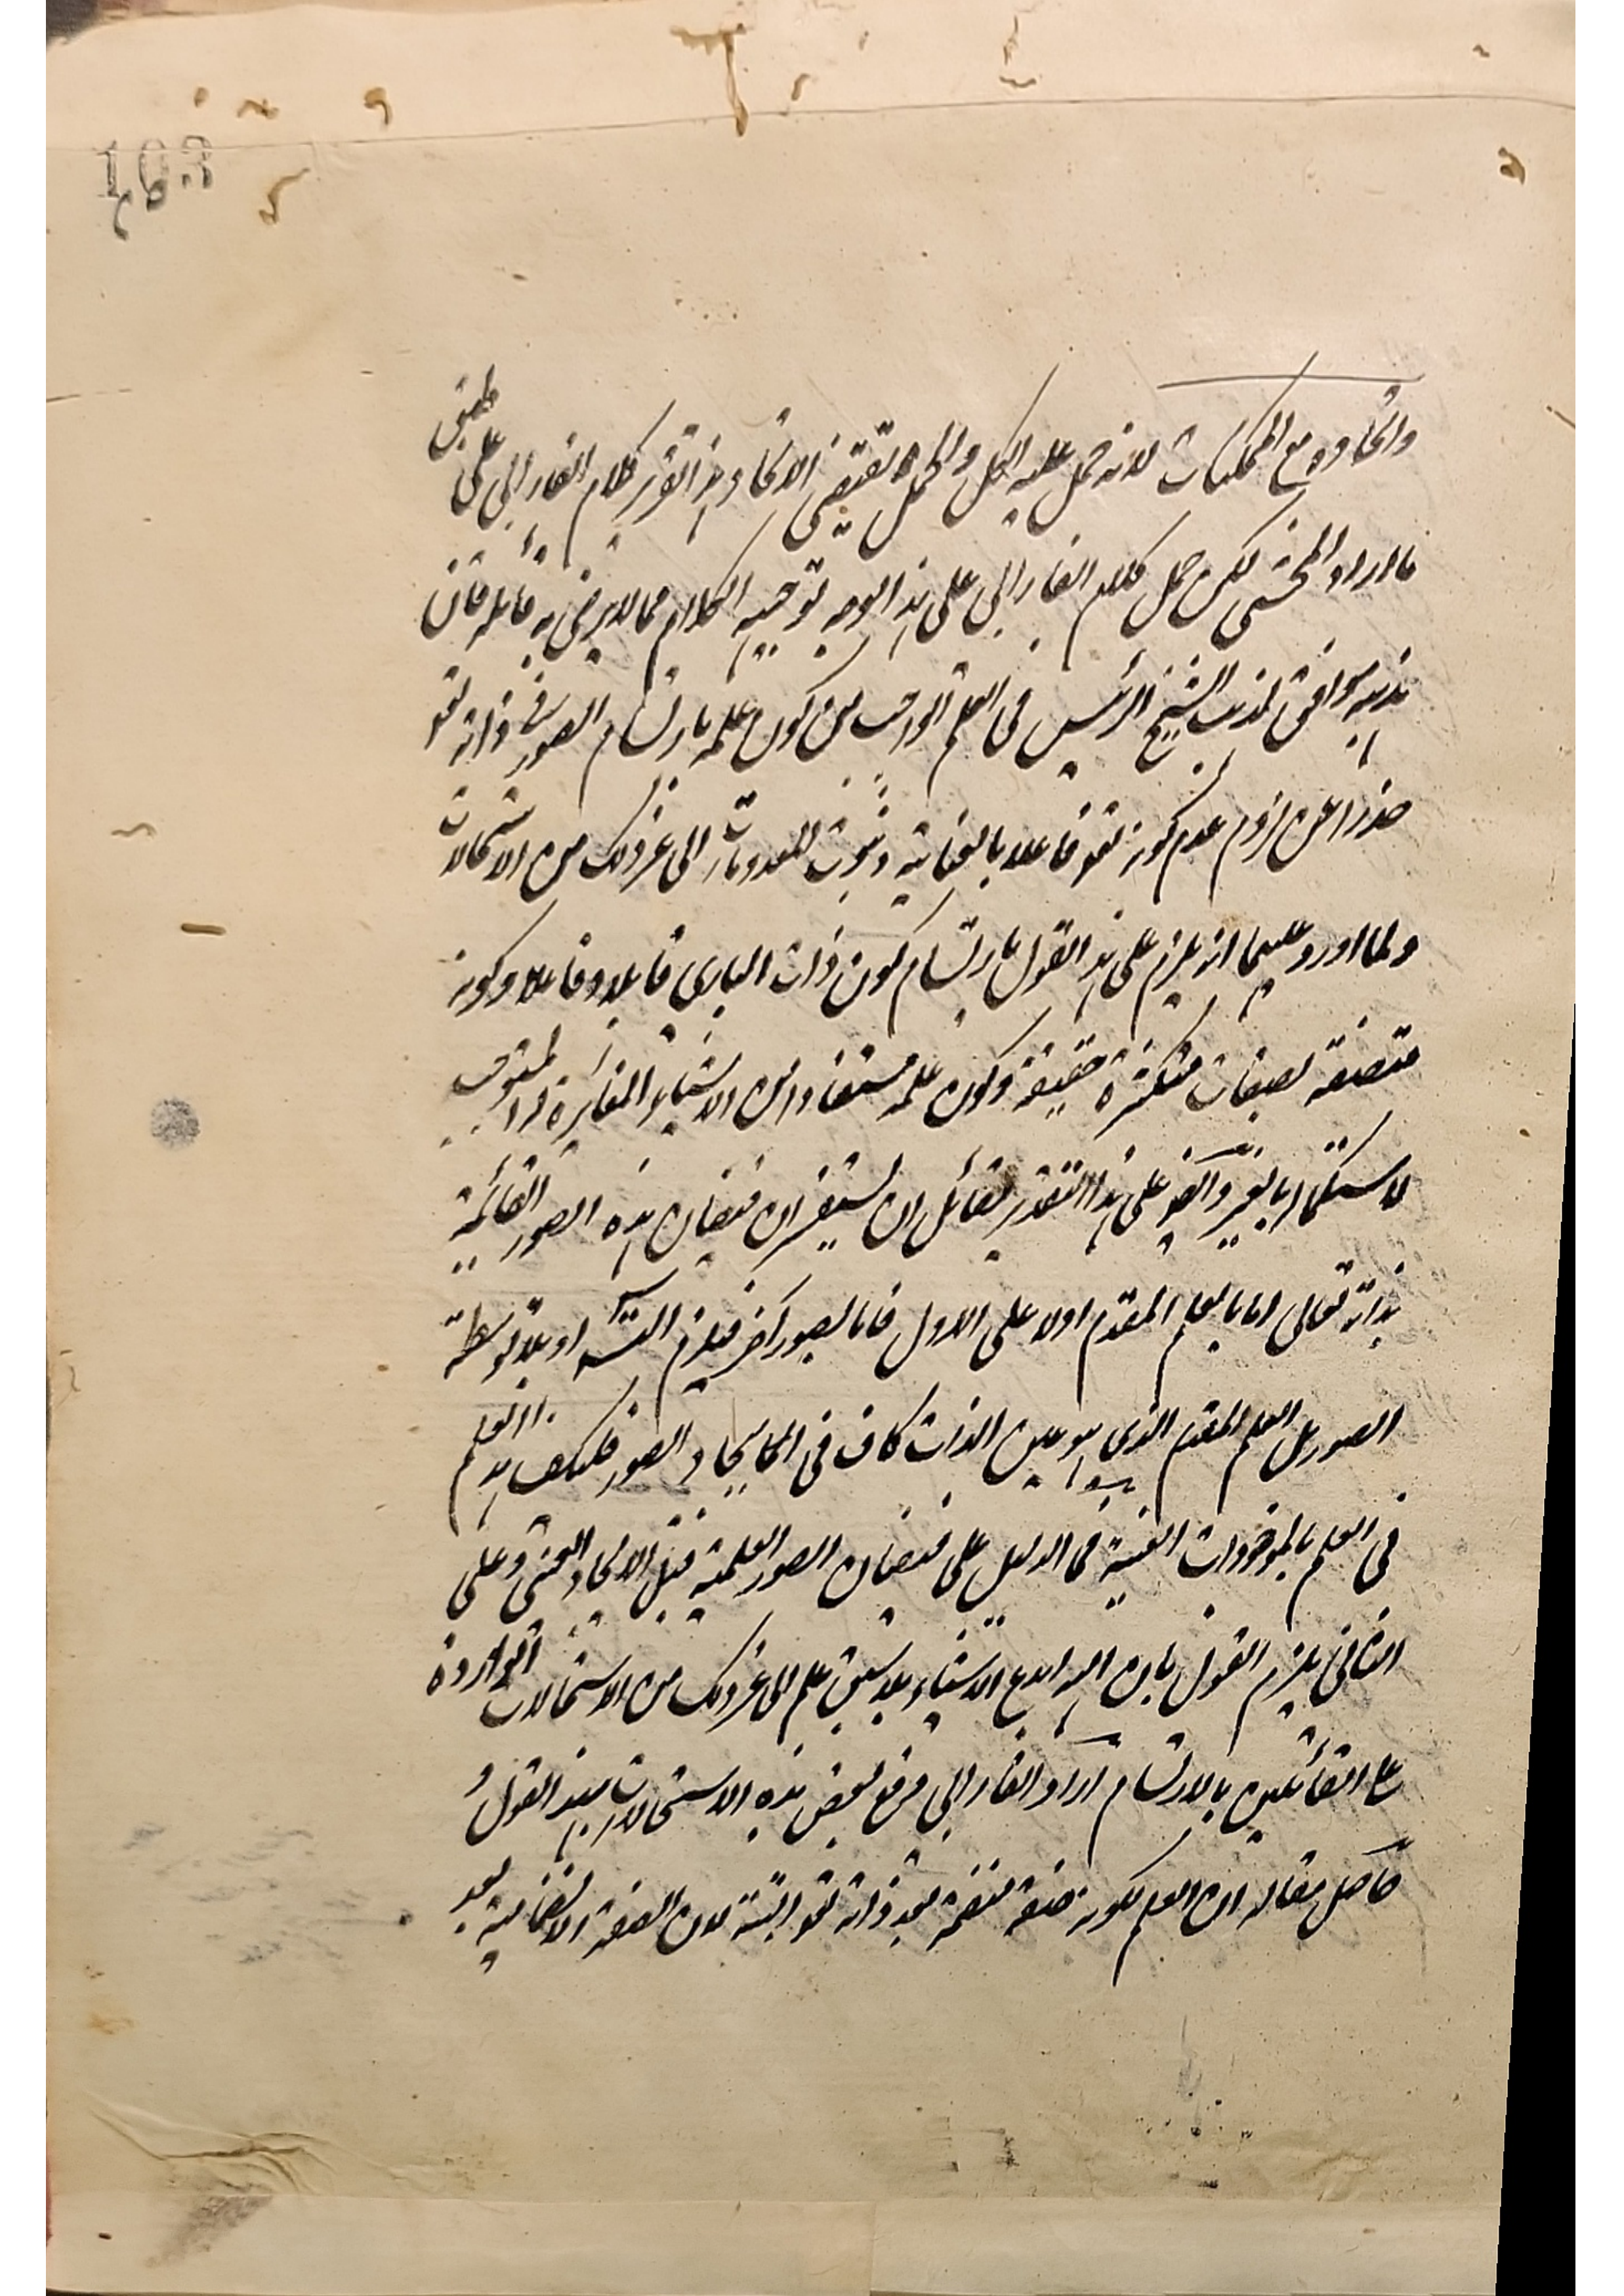 واتحاده مع الممكنات لانه حمل عليه الكل والحمل يقتضي الاتحاد هذا تقرير كلام الفارابي على طبق
ما اراد المحشي لكن حمل كلام الفارابي على هذا الوجه توجيه الكلام مما لا يرضى به قائله فان
مذهبه موافق لمذهب الشيخ الرئيس في العلم الواجب من كون علمه بارتسام الصور في ذاته تعو
حذرا عن لزوم عدم كونه تعو فاعلا بالعناية وثبوت المعدومات الى غير ذلك من الاستحالات
ولما اورد عليهما انه يلزم على هذا القول بارتسام كون ذات الباري قابلا وفاعلا وكونه
متصفة بصفات متكثرة حقيقة وكون علمه مستفادا من الاشياء المغايرة له المستوجب
لاستكماله بالغير وايضو على هذا التقدير لقائل ان يستفسر ان فيضان هذه الصور القائمة
بذاته تعالى اما بالعلم المقدم اولا على الاول فاما بصور اخر فيلزم التسـ او بلا توسطة
الصور بل العلم المقدم الذي هو عين الذات كاف في ايجاد الصور فليكف هذا العلم
في العلم بالموجودات العينية فما الدليل على فيضان الصور العلمية قبل الايجاد العيني وعلى
الثاني يلزم القول بان الله ابدع الاشياء بلا سبق علم الى غير ذلك من الاستحالات الواردة
على القائلين بالارتسام اراد الفارابي دفع بعض هذه الاستحالات بهذا القول و
حاصل مقاله ان العلم لكونه صفة منضمة بعد ذاته تعو البتة لان الصفة الانضمامية بعد